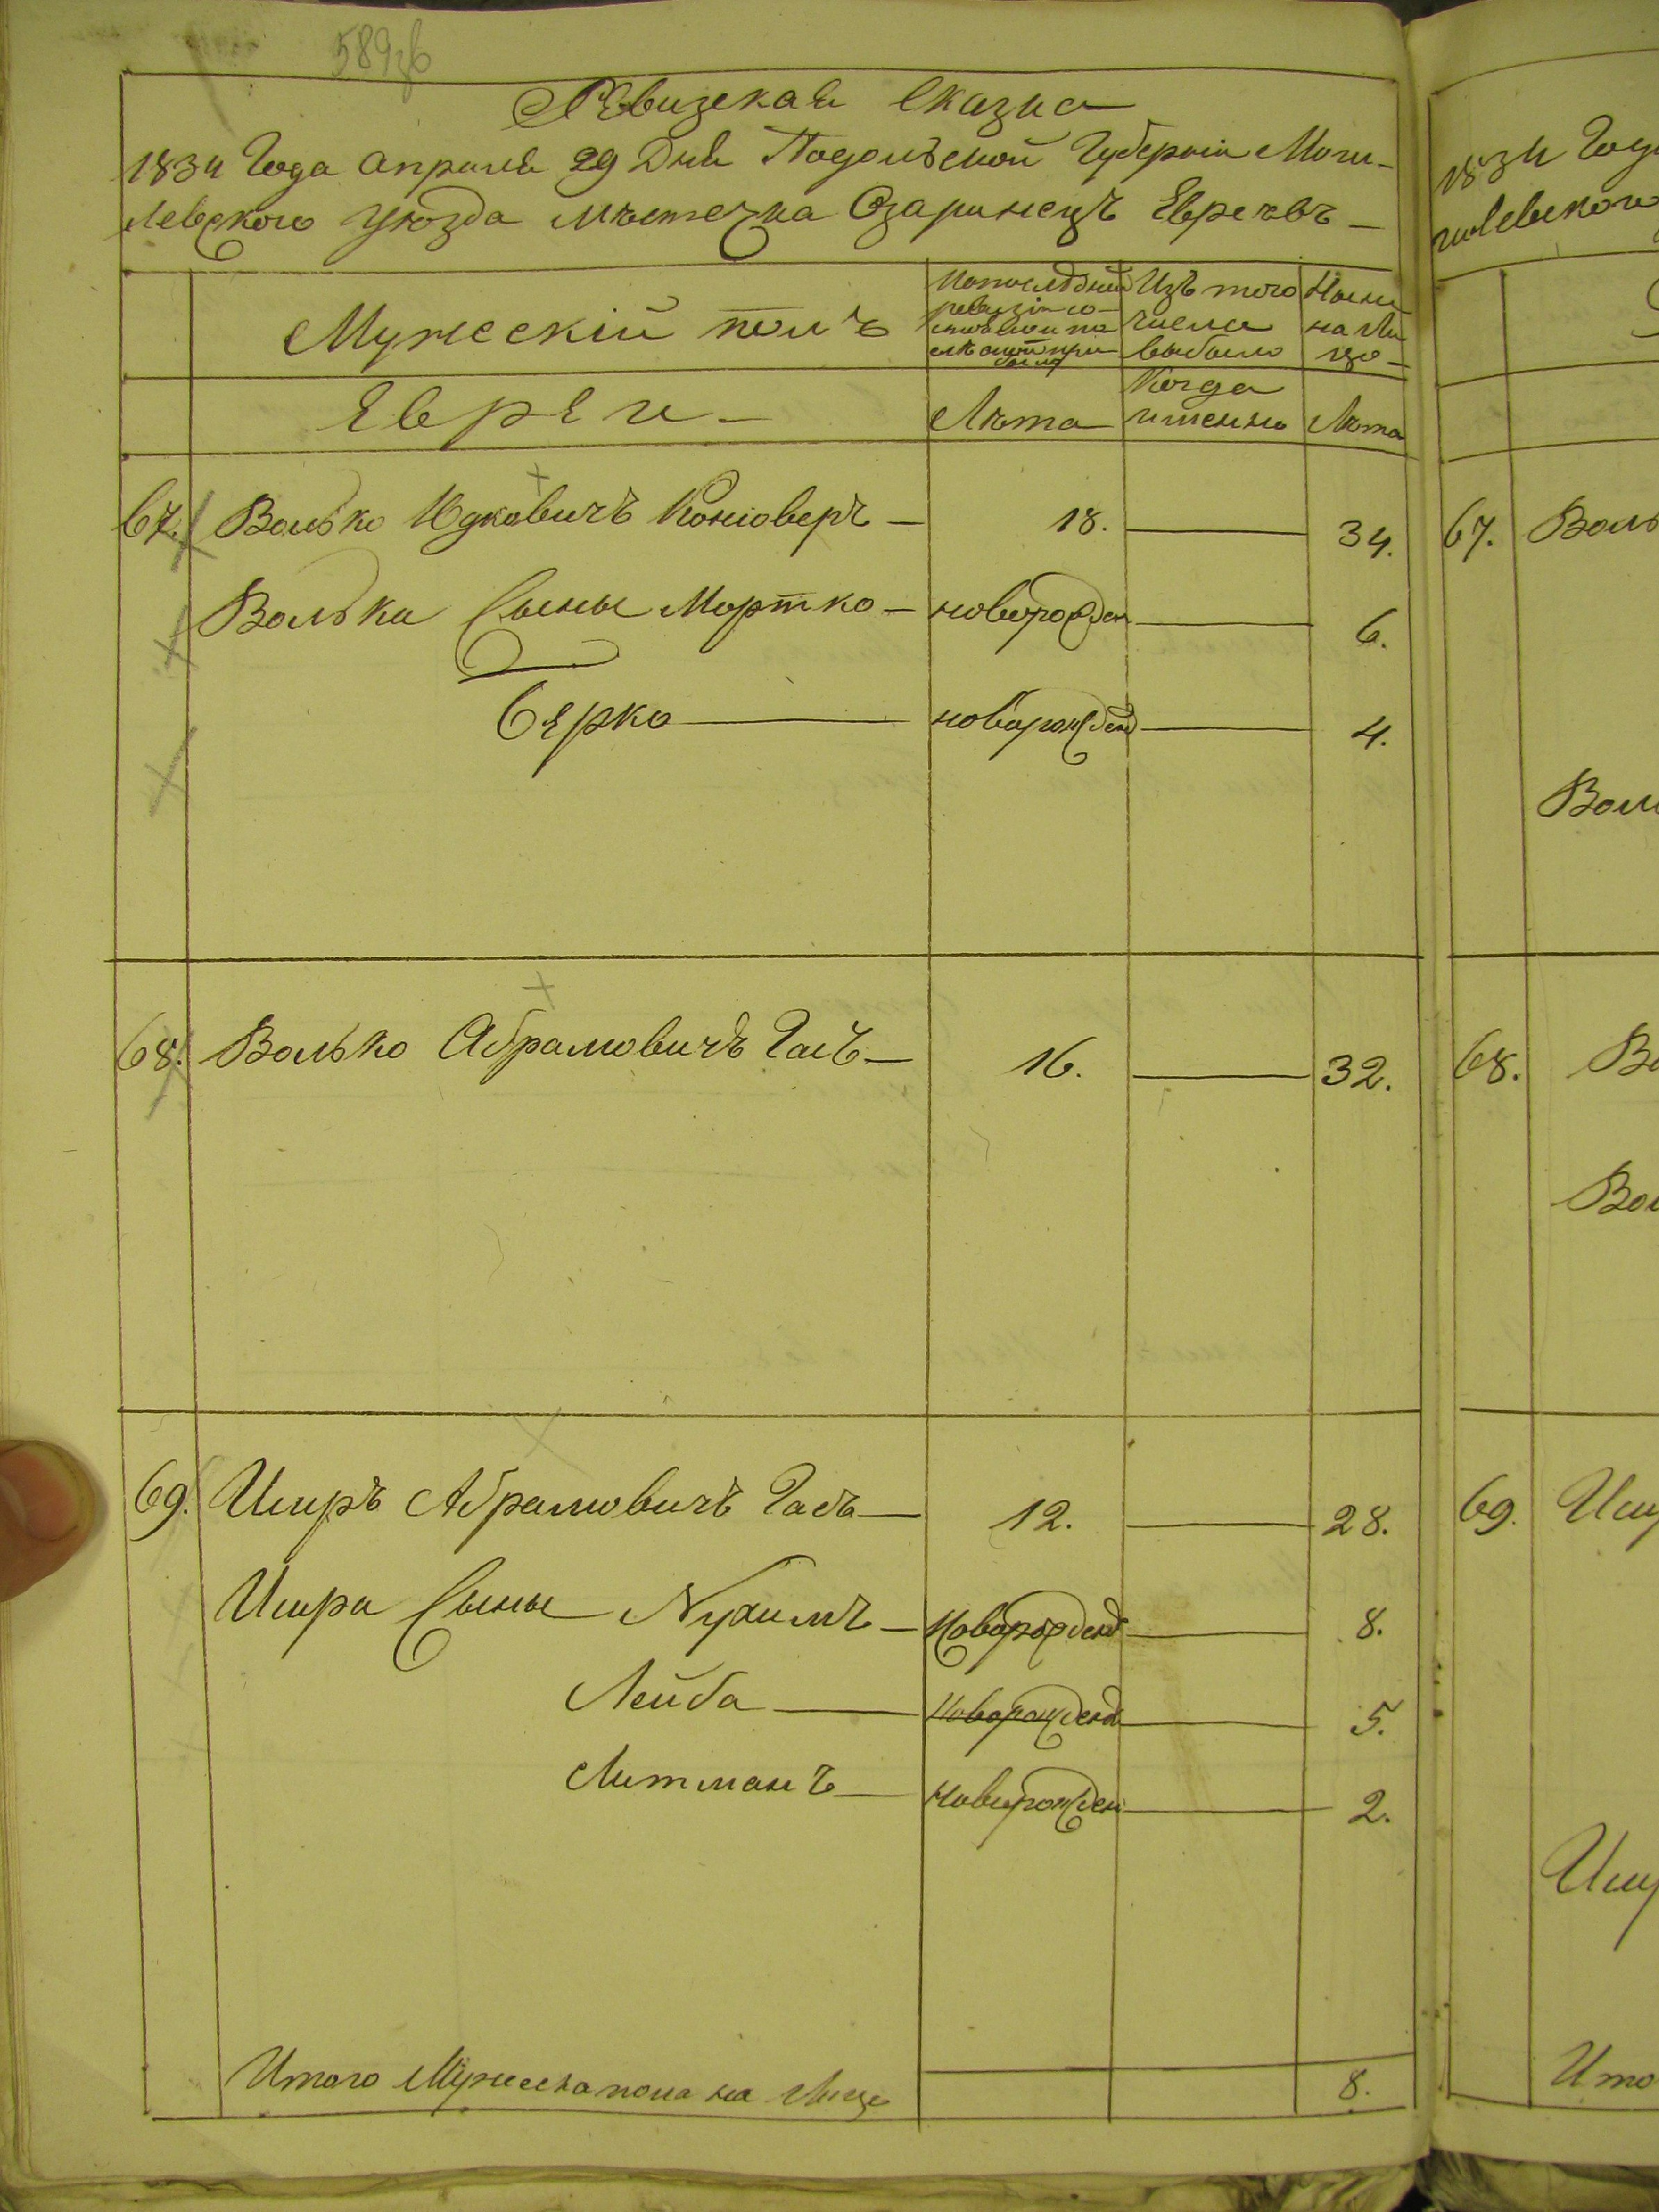 589зв
Ревизская Сказка
1834 Года Апреля 29 Дня Подольской Губерніи Моги-
левского Уѣзда Мѣстечка Озаринецъ Евреевъ
Мужескій полъ
По последней
ревизіи со-
стояло и по
сле оной при
было
Изъ того
числа
выбыло
Ныне
на ли
цо
Евреи
Лѣта
Когда
именно
Лѣта
67. Волько Юдковичъ Коновер 18. 34.
Волька Сыны Мортко новорожден 6.
Берко новорожден 4.
68. Волько Абрамовичъ Гасъ 16. 32.
69. Шмиръ Абрамовичъ Гасъ 12. 28.
Сыны Нухимъ новорожден 8.
Лейба новорожден 5.
Литманъ новорожден 2.
Итого Мужеска пола на Лице 8.
1834 Год
левского
67. Воль
Воль
68. Во
Вол
69.
Ито